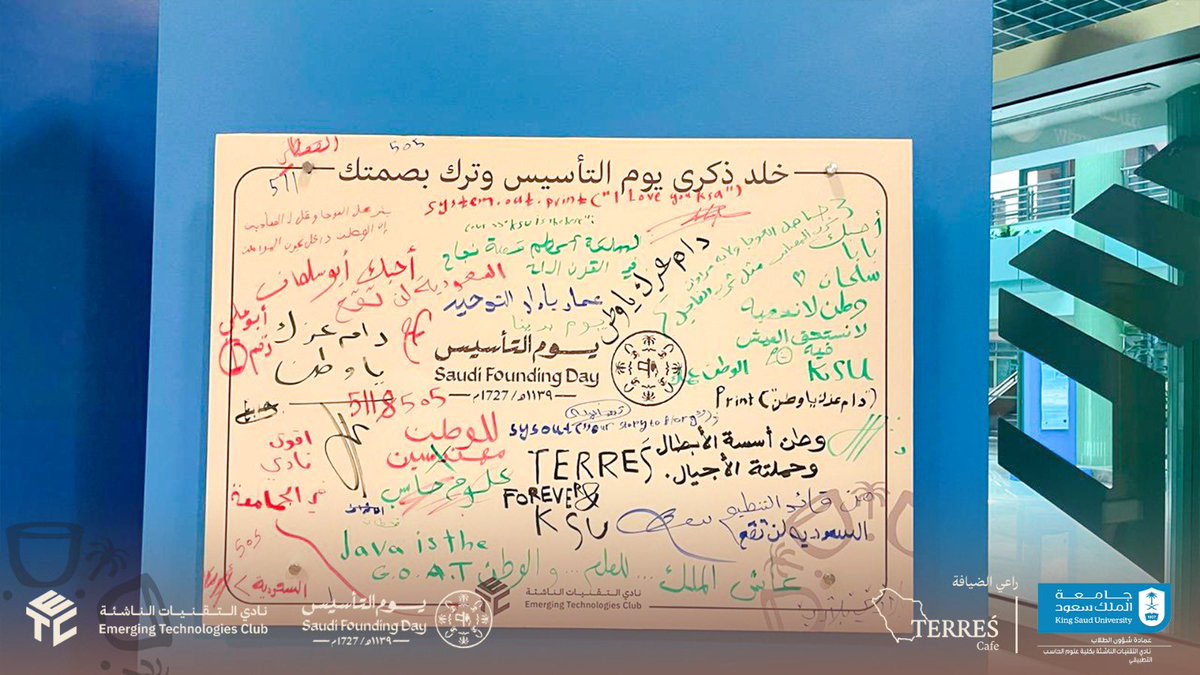 القحطاني
505
511
خلد ذكرى يوم التأسيس وترك بصمتك
system.out.print("I love you ksa")
cout<<"KSU is the best";
دام عزك يا وطن
أحبك
بابا
سلمان
أحبك أبو سلمان
السعودية لن تقع
عماد بلادي التوحيد
يوم بدينا
وطن لا نحميه
لا نستحق العيش
فيه
KSU
أبو علي
رقم 1
دام عزك
يا وطن
يوم التأسيس
Saudi Founding Day
١١٣٩هـ/1727م
الوطن
Print("دام عزك يا وطن")
511 8 505
sysout("our story to glory");
للوطن
مهندسين
علوم حاسب
وطن أسسة الأبطال
وحملتة الأجيال.
TERRES
FOREVER
KSU
اقوى
نادي
في الجامعة
من قائد التنظيم
السعودية لن تقع
Java is the
G.O.A.T
عاش الملك ... للعلم ... و الوطن
505
السعودية >
نادي التقنيات الناشئة
Emerging Technologies Club
نادي التقنيات الناشئة
Emerging Technologies Club
يوم التأسيس
Saudi Founding Day
١١٣٩هـ/1727م
راعي الضيافة
TERRES
Cafe
جامعة
الملك سعود
King Saud University
عمادة شؤون الطلاب
نادي التقنيات الناشئة بكلية علوم الحاسب
التطبيقي